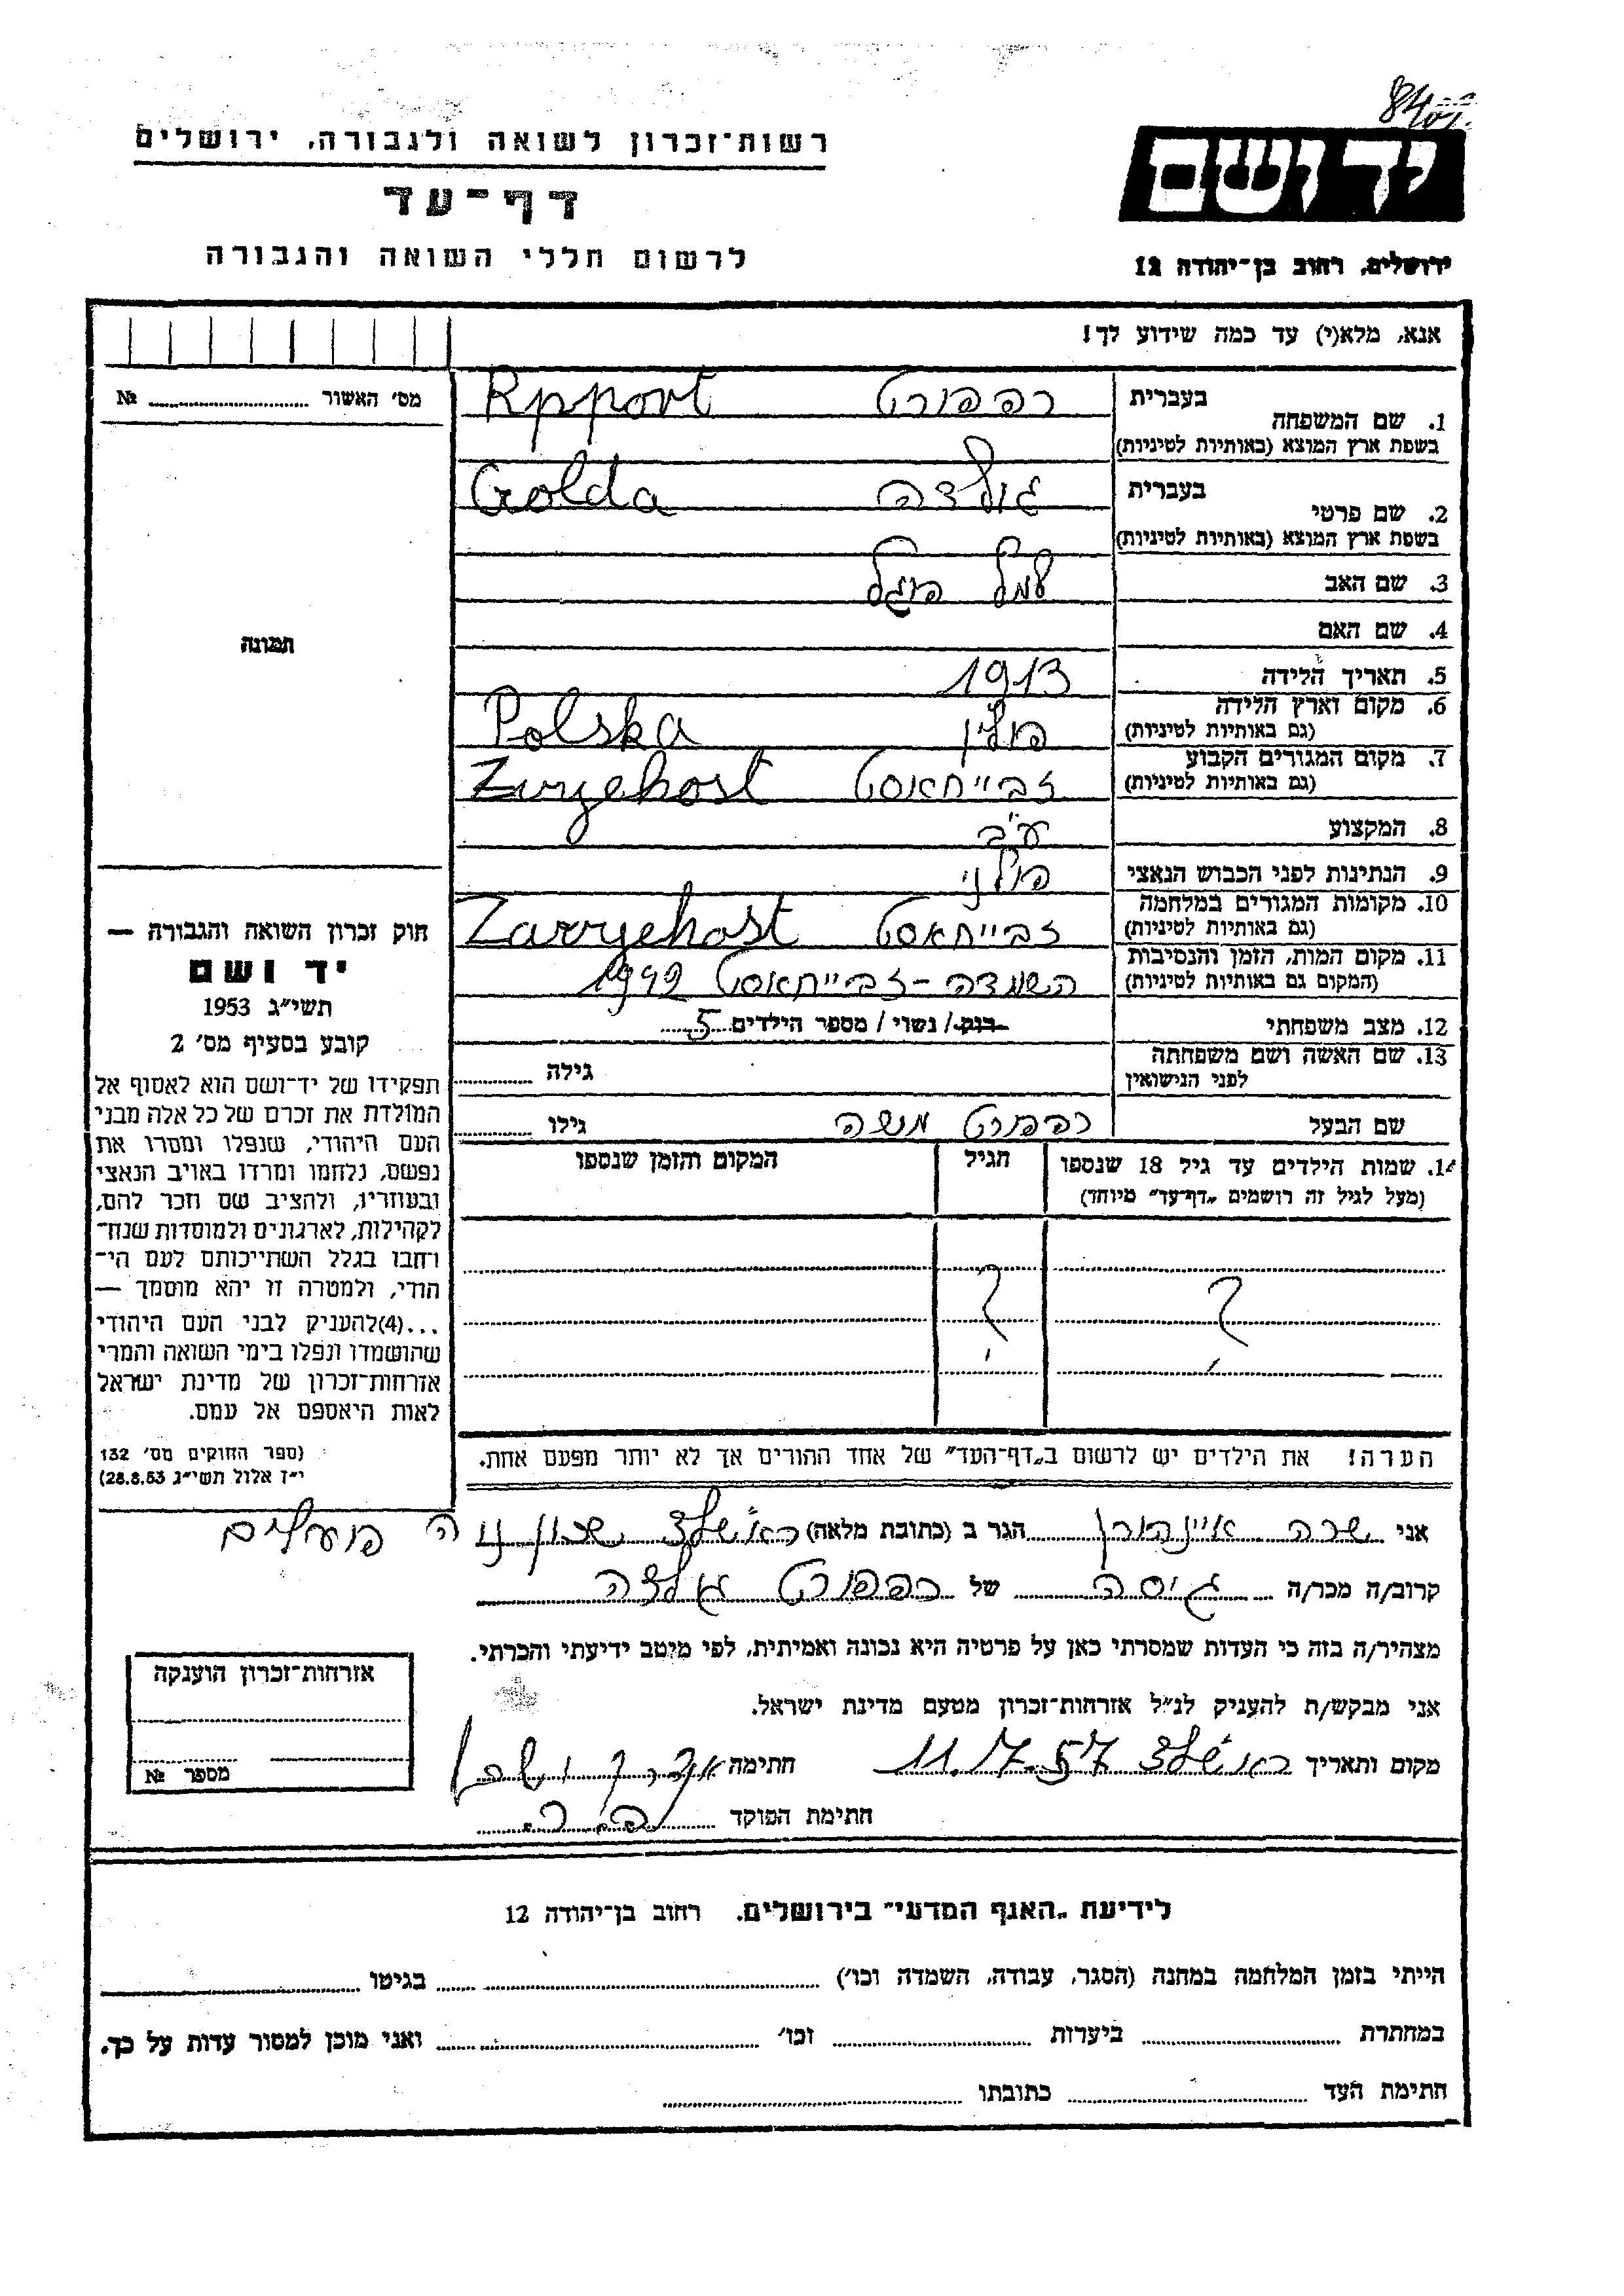 רשות־זכרון לשואה ולגבורה, ירושלים
דף־עד
לרשום חללי השואה והגבורה
יד ושם
ירושלים, רחוב בן־יהודה 12
אנא, מלא(י) עד כמה שידוע לך!
מס׳ האשור № 
תמונה
1. שם המשפחה בעברית רפפורט Rpport
בשפת ארץ המוצא (באותיות לטיניות)
2. שם פרטי בעברית גולדה Golda
בשפת ארץ המוצא (באותיות לטיניות)
3. שם האב
4. שם האם
5. תאריך הלידה 1913
6. מקום וארץ הלידה פולין Polska
(גם באותיות לטיניות)
7. מקום המגורים הקבוע זבייחאסט
(גם באותיות לטיניות)
8. המקצוע ע״ב
9. הנתינות לפני הכבוש הנאצי פולני
10. מקומות המגורים במלחמה זבייחאסט Zarryehost
(גם באותיות לטיניות)
11. מקום המות, הזמן והנסיבות השמדה - זבייחאסט 1942
(המקום גם באותיות לטיניות)
12. מצב משפחתי רוק / נשוי / מספר הילדים 5
13. שם האשה ושם משפחתה לפני הנישואין גילה
שם הבעל רפפורט משה גילו
14. שמות הילדים עד גיל 18 שנספו הגיל המקום והזמן שנספו
(מעל לגיל זה רושמים „דף־עד״ מיוחד)
? ?
הערה! את הילדים יש לרשום ב„דף־העד״ של אחד ההורים אך לא יותר מפעם אחת.
חוק זכרון השואה והגבורה —
יד ושם
תשי״ג 1953
קובע בסעיף מס׳ 2
תפקידו של יד־ושם הוא לאסוף אל
המולדת את זכרם של כל אלה מבני
העם היהודי, שנפלו ומסרו את
נפשם, נלחמו ומרדו באויב הנאצי
ובעוזריו, ולהציב שם וזכר להם,
לקהילות, לארגונים ולמוסדות שנח־
רחבו בגלל השתייכותם לעם הי־
הודי, ולמטרה זו יהא מוסמך —
...(4) להעניק לבני העם היהודי
שהושמדו ונפלו בימי השואה והמרי
אזרחות־זכרון של מדינת ישראל
לאות היאספם אל עמם.
(ספר החוקים מס׳ 132
י״ז אלול תשי״ג 28.8.53)
אני שרה הגר ב (כתובת מלאה) ראשלצ שכון פועלים
קרוב/ה מכר/ה גיסה של רפפורט גולדה
מצהיר/ה בזה כי העדות שמסרתי כאן על פרטיה היא נכונה ואמיתית, לפי מיטב ידיעתי והכרתי.
אני מבקש/ת להעניק לנ״ל אזרחות־זכרון מטעם מדינת ישראל.
מקום ותאריך ראשלצ 11.7.57 חתימה
חתימת הפוקד
אזרחות־זכרון הוענקה
מספר №
לידיעת „האגף המדעי״ בירושלים, רחוב בן־יהודה 12
הייתי בזמן המלחמה במחנה (הסגר, עבודה, השמדה וכו׳) בגיטו
במחתרת ביערות וכו׳ ואני מוכן למסור עדות על כך.
חתימת העד כתובתו